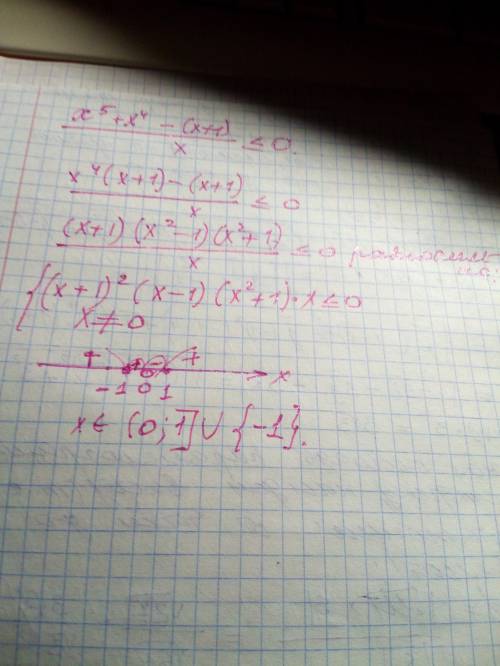 x⁵ + x⁴ - (x+1) / x ≤ 0.
x⁴(x+1) - (x+1) / x ≤ 0
(x+1)(x²-1)(x²+1) / x ≤ 0
{(x+1)²(x-1)(x²+1)·x ≤ 0
x ≠ 0
+ + - + x
-1 0 1
x ∈ (0; 1] ∪ {-1}.